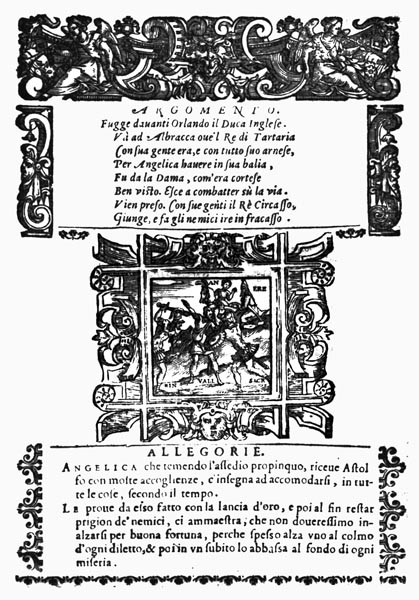 ARGOMENTO.
Fugge davanti Orlando il Duca Inglese.
Và ad Albracca oue'l Re di Tartaria
Con sua gente era, e con tutto suo arnese,
Per Angelica hauere in sua balia,
Fu da la Dama, com'era cortese
Ben visto. Esce a combatter sù la via.
Vien preso. Con sue genti il Rè Circasso,
Giunge, e fa gli nemici ire in fracasso.
AN ERE
BIN VALI SACR
ALLEGORIE.
ANGELICA che temendo l'assedio propinquo, riceue Astol
fo con molte accoglienze, c'insegna ad accomodarsi, in tut-
te le cose, secondo il tempo.
LE proue da esso fatto con la lancia d'oro, e poi al fin restar
prigion de' nemici, ci ammaestra, che non doueressimo in-
alzarsi per buona fortuna, perche spesso alza vno al colmo
d'ogni diletto, & poi in vn subito lo abbassa al fondo di ogni
miseria.